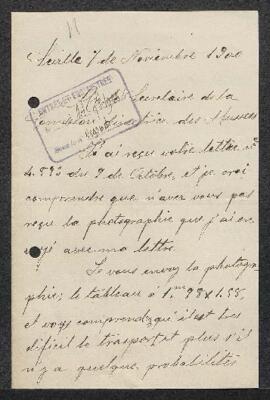 11
Séville 7 de Novembre 1900
Secretaire de la
des Musées
J'ai reçu votre lettre nº
du 9 de Octobre, et je croi
comprendre que n'aver vous pas
reçu la photographie que j'ai en
voyé avec ma lettre.
Je vous envoy la photogra-
phie; le tableau á 1.m 98 x 1.55,
et vous comprendez qu'il est tres
dificil le trasport, et plus s'il
n'y a quelque probabilités